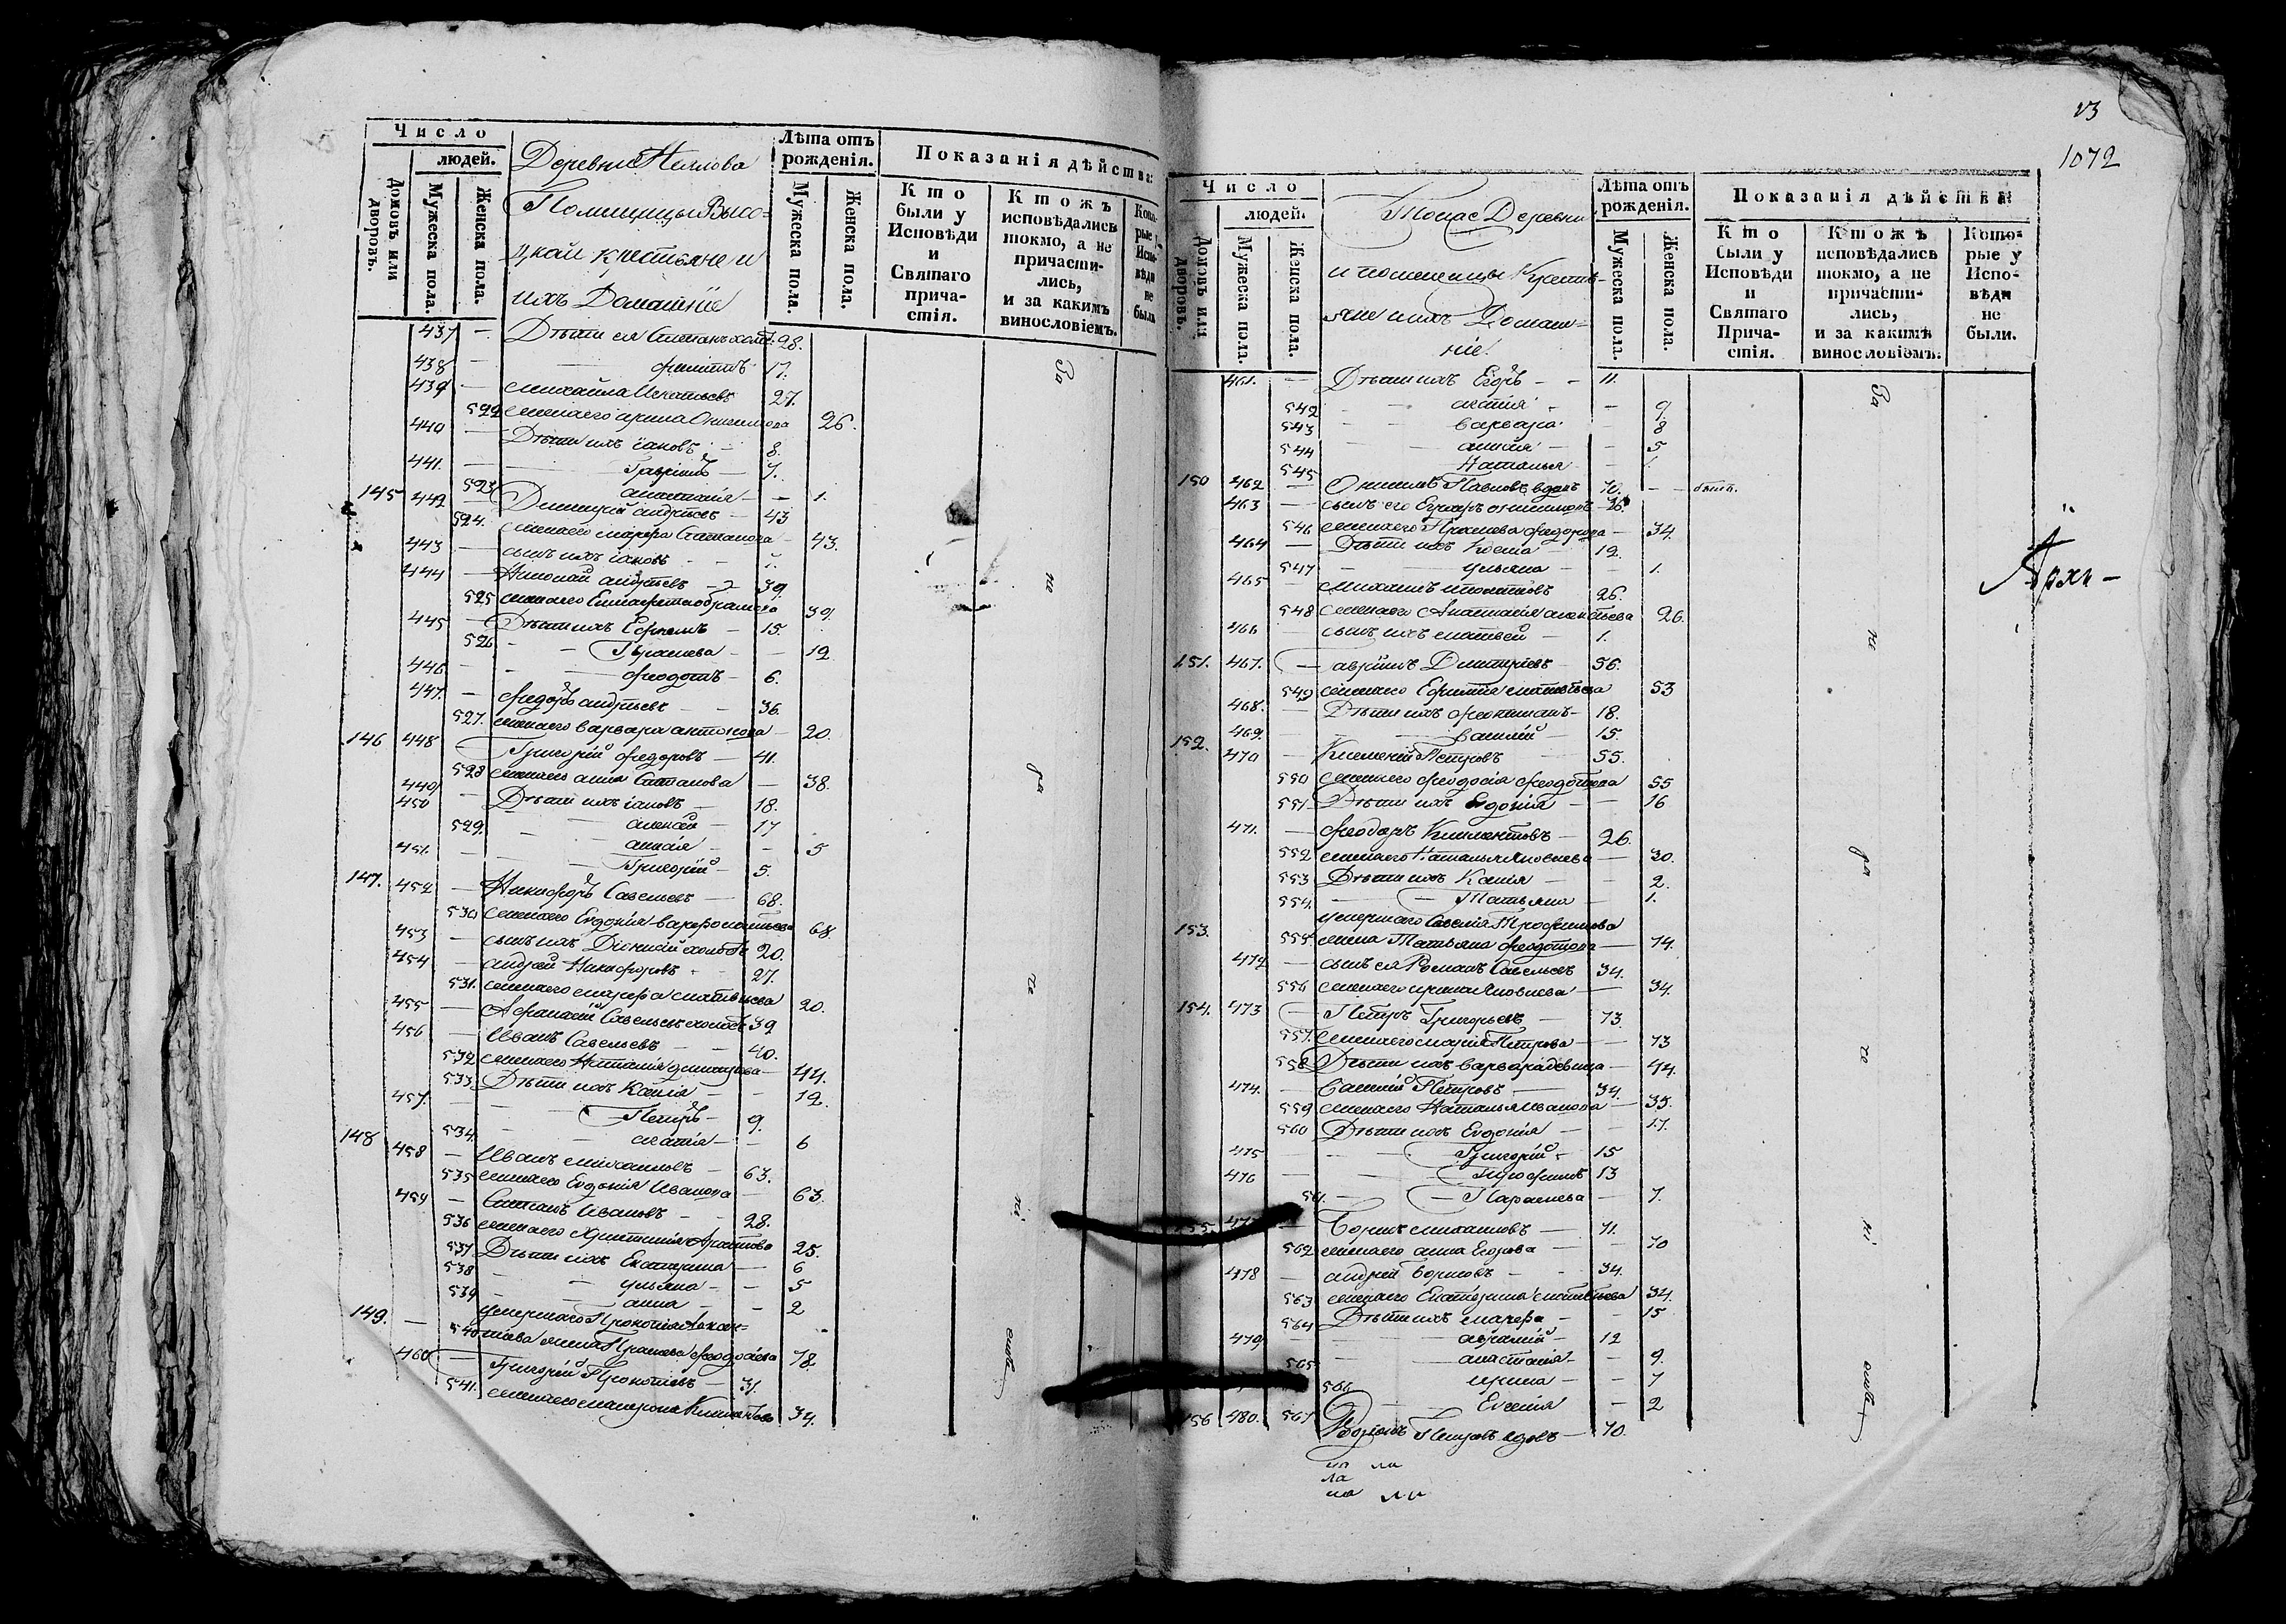 Число
людей.
Домовъ или дворовъ.
Мужеска пола.
Женска пола.
Деревни
Помещицы Высо=
цкой крестьяне и
ихъ Домашніе
Лѣта отъ рожденія.
Мужеска пола.
Женска пола.
Показанія дѣйства:
Кто были у Исповѣди и Святаго причастія.
Кто жъ исповѣдались токмо, а не причастились, и за какимъ винословіемъ.
Которые у Исповѣди не были
437 — Дѣти ея Степанъ холос: 28.
438 — Филиппъ 17.
439 — Михайла Игнатьевъ 27.
522 жена его Ирина Онисимова 26.
440 — Дѣти ихъ Іаковъ — 8.
441. — Гаврiилъ — 7.
523 Анастасія — 1.
145 442 — Димитрій Андреевъ — 43
524. жена его Марфа Степанова — 43.
443 — сынъ ихъ Іаковъ — 1.
444 — Николай Андреевъ — 39.
525 жена его 39.
445 — Дѣти ихъ Ефремъ — 15.
526 — Парасковья — 12
446 — Феодотъ — 6.
447. — Федоръ Андреевъ — 36.
527. жена его Варвара Антонова — 20.
146 448 — Григорій Федоровъ — 41.
528 жена его Анна Степанова — 38.
449 — Дѣти ихъ Іаковъ — 18.
450 — Алексей — 17
529. — Анисія — 5
451. — Григорій — 5.
147. 452 — Никифоръ Савельевъ — 68.
530 жена его Евдокія Варфоломеева 68.
453 — сынъ ихъ Діонисій холостъ 20.
454 — Андрей Никифоровъ — 27.
531. жена его Марфа Матвеева 20.
455 — Афанасій Савельевъ холостъ 39.
456 — Иванъ Савельевъ — 40.
532 жена его Наталія Димитрева — 44.
533. Дѣти ихъ Ксенія — 12.
457. — Петръ — 9.
534. — Агафія — 6
148 458 — Иванъ Михаиловъ — 63.
535 жена его Евдокія Иванова — 63.
459 — Степанъ Ивановъ — 28.
536 жена его Христинія 25.
537 Дѣти ихъ Екатерина — 6
538 — Ульяна — 5
539 — Анна — 2
149. — умершаго Прокопія
540 жена Феодосіева 78.
460 — Григорій Прокопіевъ — 31.
541. жена его 34.
За не дя те ні емъ
23
1072
Число
людей.
Домовъ или дворовъ.
Мужеска пола.
Женска пола.
Тояже Деревни
и помещицы Кресть=
яне ихъ Домаш=
ніе.
Лѣта отъ рожденія.
Мужеска пола.
Женска пола.
Показанія дѣйства
Кто были у Исповѣди и Святаго Причастія.
Кто жъ исповѣдались токмо, а не причастились, и за какимъ винословіемъ.
Которые у Исповѣди не были.
461. — Дѣти ихъ Егоръ — 11.
542 — 9.
543 — Варвара — 8
544 — Анисія — 5
545 Наталья — 1.
150 462 — Онисимъ Павловъ вдовъ 70. — былъ.
463 — сынъ его Онисимовъ 36.
546 жена его Федорова — 34.
464 — Дѣти ихъ Косма — 12.
547 — Ульяна — 1.
465 — 26.
548 жена его Анастасія 26.
466 — сынъ ихъ Матвей — 1.
151. 467. — Гавріилъ Димитріевъ — 56.
549 жена его Матвеева 53
468. — Дѣти ихъ 18.
469. — Василій — 15.
152. 470 — Климентій Петровъ — 55.
550 жена его Феодосія Феодотова 55
551 Дѣти ихъ Евдокія — 16
471. — Феодоръ Климентовъ — 26.
552 жена его Наталья Яковлева — 30.
553 Дѣти ихъ Ксенія — 2.
554. — Татьяна — 1.
153. умершаго Савелія Трофимова
555 жена Татьяна Феодотова — 74.
472 — сынъ ея Романъ Савельевъ 34.
556 жена его Ирина Яковлева — 34.
154. 473 — Петръ Григорьевъ — 73.
557. жена его Марія Петрова — 73
558 Дѣти ихъ Варвара девица — 44.
474. — Василій Петровъ — 34.
559 жена его Наталья Иванова — 35.
560 Дѣти ихъ Евдокія — 17.
475 — Григорій — 15
476 — Трофимъ 13
561. — Парасковья — 7.
155. 477 — Борисъ Михаиловъ — 71.
562 жена его Анна Егорова — 70
478 — Андрей Борисовъ — 34.
563 жена его Екатерина Матвеева 34.
564 Дѣти ихъ Марфа — 15
479 — Аврамій — 12
565 — Анастасія — 9.
566 — Ирина — 7
567 — Евгенія — 2
156 480. Петровъ вдовъ — 70.
За не дя те ні емъ
Архи-